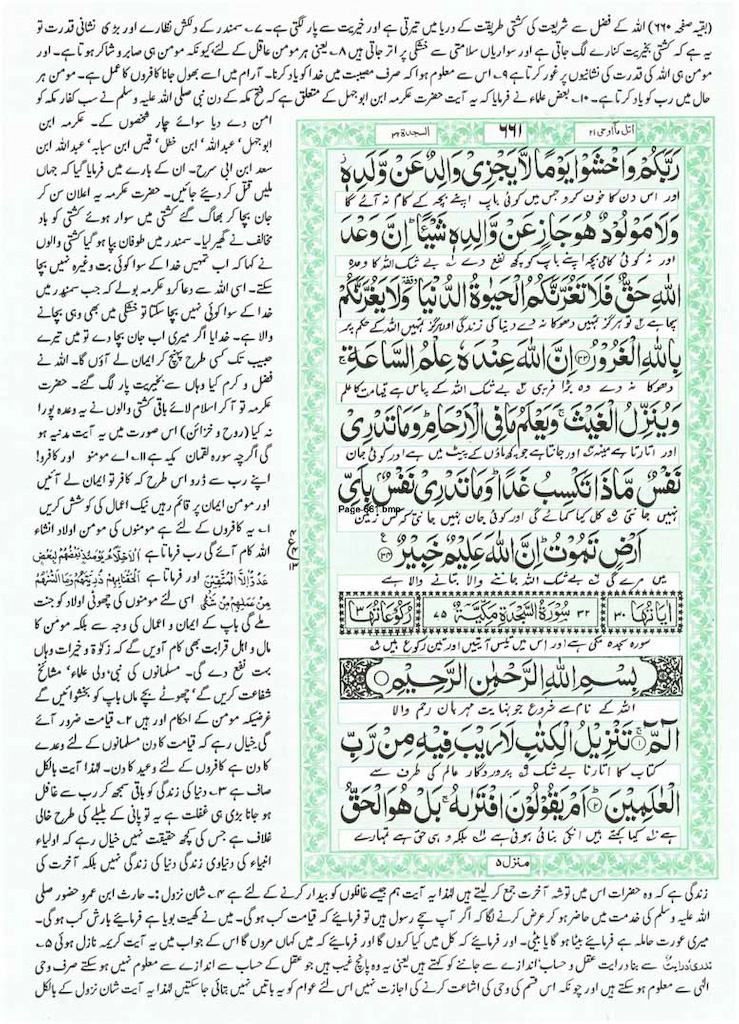 (بقیہ صفحہ ۶۶۰) اللہ کے فضل سے شریعت کی کشتی طریقت کے دریا میں تیرتی ہے اور خیریت سے پار لگتی ہے۔ ۷۔ سمندر کے دلکش نظارے اور بڑی نشانی قدرت تو
یہ ہے کہ کشتی بخیریت کنارے لگ جاتی ہے اور سواریاں سلامتی سے خشکی پر اتر جاتی ہیں ۸۔ یعنی ہر مومن عاقل کے لئے، کیونکہ مومن ہی صابر و شاکر ہوتا ہے۔ اور
مومن ہی اللہ کی قدرت کی نشانیوں پر غور کرتا ہے ۹۔ اس سے معلوم ہوا کہ صرف مصیبت میں خدا کو یاد کرنا۔ آرام میں اسے بھول جانا کافروں کا عمل ہے۔ مومن ہر
حال میں رب کو یاد کرتا ہے۔ ۱۰۔ بعض علماء نے فرمایا کہ یہ آیت حضرت عکرمہ ابن ابوجہل کے متعلق ہے کہ فتح مکہ کے دن نبی صلی اللہ علیہ وسلم نے سب کفار مکہ کو
امن دے دیا سوائے چار شخصوں کے۔ عکرمہ ابن
ابوجہل' عبداللہ ابن خطل' قیس ابن سبابہ' عبداللہ ابن
سعد ابن ابی سرح۔ ان کے بارے میں فرمایا گیا کہ جہاں
ملیں قتل کر دیئے جائیں۔ حضرت عکرمہ یہ اعلان سن کر
جان بچا کر بھاگ گئے کشتی میں سوار ہوئے کشتی کو باد
مخالف نے گھیر لیا۔ سمندر میں طوفان بپا ہو گیا کشتی والوں
نے کہا کہ اب تمہیں خدا کے سوا کوئی بت وغیرہ نہیں بچا
سکتے۔ اسی اللہ سے دعا کرو عکرمہ بولے کہ جب سمندر میں
خدا کے سوا کوئی نہیں بچا سکتا تو خشکی میں بھی وہی بچانے
والا ہے۔ خدایا اگر میری اب جان بچا دے تو میں تیرے
حبیب تک کسی طرح پہنچ کر ایمان لے آؤں گا۔ اللہ نے
فضل و کرم کیا وہاں سے بخیریت پار لگ گئے۔ حضرت
عکرمہ تو آ کر اسلام لائے باقی کشتی والوں نے یہ وعدہ پورا
نہ کیا (روح و خزائن) اس صورت میں یہ آیت مدنیہ ہو
گی اگرچہ سورہ لقمان مکیہ ہے ۱۱۔ اے مومنو اور کافرو!
اپنے رب سے ڈرو اس طرح کہ کافر تو ایمان لے آئیں
اور مومن ایمان پر قائم رہیں نیک اعمال کی کوشش کریں
۱۔ یہ کافروں کے لئے ہے مومنوں کی مومن اولاد انشاء
اللہ کام آئے گی رب فرماتا ہے اَلْاَخِلَّآءُ يَوْمَئِذٍۭ بَعْضُهُمْ لِبَعْضٍ
عَدُوٌّ اِلَّا الْمُتَّقِيْنَ اور فرماتا ہے اَلْحَقْنَا بِهِمْ ذُرِّيَّتَهُمْ وَمَآ اَلَتْنٰهُمْ
مِّنْ عَمَلِهِمْ مِّنْ شَيْءٍ اسی لئے مومنوں کی چھوٹی اولاد کو جنت
ملے گی باپ کے ایمان و اعمال کی وجہ سے بلکہ مومن کا
مال و اہل قرابت بھی کام آویں گے کہ زکوٰۃ و خیرات وہاں
بہت نفع دے گی۔ مسلمانوں کی نبی' ولی علماء' مشائخ
شفاعت کریں گے' چھوٹے بچے ماں باپ کو بخشوائیں گے
غرضیکہ مومن کے احکام اور ہیں ۲۔ قیامت ضرور آئے
گی خیال رہے کہ قیامت کا دن مسلمانوں کے لئے وعدے
کا دن ہے کافروں کے لئے وعید کا دن۔ لہٰذا آیت بالکل
صاف ہے ۳۔ دنیا کی زندگی کو باقی سمجھ کر رب سے غافل
ہو جانا بڑی ہی غفلت ہے یہ تو پانی کے بلبلے کی طرح خالی
غلاف ہے جس کی کچھ حقیقت نہیں خیال رہے کہ اولیاء
انبیاء کی دنیاوی زندگی دنیا کی زندگی نہیں بلکہ آخرت کی
اتل ما اوحی ۲۱
۶۶۱
السجدة ۳۲
رَبَّكُمْ وَاخْشَوْا يَوْمًا لَّا يَجْزِيْ وَالِدٌ عَنْ وَّلَدِهٖ
اور اس دن کا خوف کرو جس میں کوئی باپ اپنے بچہ کے کام نہ آئے گا
وَلَا مَوْلُوْدٌ هُوَ جَازٍ عَنْ وَّالِدِهٖ شَيْـًٔا اِنَّ وَعْدَ
اور نہ کوئی کامی بچہ اپنے باپ کو کچھ نفع دے بے شک اللہ کا وعدہ
اللّٰهِ حَقٌّ فَلَا تَغُرَّنَّكُمُ الْحَيٰوةُ الدُّنْيَا وَلَا يَغُرَّنَّكُمْ
سچا ہے تو ہرگز تمہیں دھوکا نہ دے دنیا کی زندگی اور ہرگز تمہیں اللہ کے حکم پر
بِاللّٰهِ الْغَرُوْرُ ﴿۳۳﴾ اِنَّ اللّٰهَ عِنْدَهٗ عِلْمُ السَّاعَةِ
دھوکا نہ دے وہ بڑا فریبی بے شک اللہ کے پاس ہے قیامت کا علم
وَيُنَزِّلُ الْغَيْثَ وَيَعْلَمُ مَا فِي الْاَرْحَامِ وَمَا تَدْرِيْ
اور اتارتا ہے مینہ اور جانتا ہے جو کچھ ماؤں کے پیٹ میں ہے اور کوئی جان
نَفْسٌ مَّاذَا تَكْسِبُ غَدًا وَمَا تَدْرِيْ نَفْسٌۢ بِاَيِّ
Page-661.bmp
نہیں جانتی کہ کل کیا کمائے گی اور کوئی جان نہیں جانتی کہ کس زمین
اَرْضٍ تَمُوْتُ اِنَّ اللّٰهَ عَلِيْمٌ خَبِيْرٌ ﴿۳۴﴾
میں مرے گی بے شک اللہ جاننے والا بتانے والا ہے
اٰيَاتُهَا ۳۰ ۳۲ سُوْرَةُ السَّجْدَةِ مَكِّيَّةٌ ۷۵ رُكُوْعَاتُهَا ۳
سورہ سجدہ مکی ہے اور اس میں تیس آیتیں اور تین رکوع ہیں
بِسْمِ اللّٰهِ الرَّحْمٰنِ الرَّحِيْمِ
اللہ کے نام سے شروع جو نہایت مہربان رحم والا
الٓمّٓ ﴿۱﴾ تَنْزِيْلُ الْكِتٰبِ لَا رَيْبَ فِيْهِ مِنْ رَّبِّ
کتاب کا اتارنا بے شک پروردگار عالم کی طرف سے
الْعٰلَمِيْنَ ﴿۲﴾ اَمْ يَقُوْلُوْنَ افْتَرٰىهُ بَلْ هُوَ الْحَقُّ
ہے کیا کہتے ہیں انکی بنائی ہوئی ہے بلکہ وہی حق ہے تمہارے
منزل ۵
زندگی ہے کہ وہ حضرات اس میں توشہ آخرت جمع کر لیتے ہیں لہٰذا یہ آیت ہم جیسے غافلوں کو بیدار کرنے کے لئے ہے ۴۔ شان نزول:۔ حارث ابن عمرو حضور صلی
اللہ علیہ وسلم کی خدمت میں حاضر ہو کر عرض کرنے لگا کہ اگر آپ سچے رسول ہیں تو فرمائیے کہ قیامت کب ہو گی۔ میں نے کھیت بویا ہے فرمایئے بارش کب ہو گی۔
میری عورت حاملہ ہے فرمائیے بیٹا ہو گا یا بیٹی۔ اور فرمائیے کہ کل میں کیا کروں گا اور فرمائیے کہ میں کہاں مروں گا اس کے جواب میں یہ آیت کریمہ نازل ہوئی ۵۔
تدری درایت سے بنا درایت عقل و حساب' اندازے سے جاننے کو کہتے ہیں یعنی یہ وہ پانچ غیب ہیں جو عقل کے حساب سے اندازے سے معلوم نہیں ہو سکتے صرف وحی
الٰہی سے معلوم ہو سکتے ہیں اور چونکہ اس قسم کی وحی کی اشاعت کرنے کی اجازت نہیں اس لئے عوام کو یہ باتیں نہیں بتائی جا سکتیں لہٰذا یہ آیت شان نزول کے بالکل